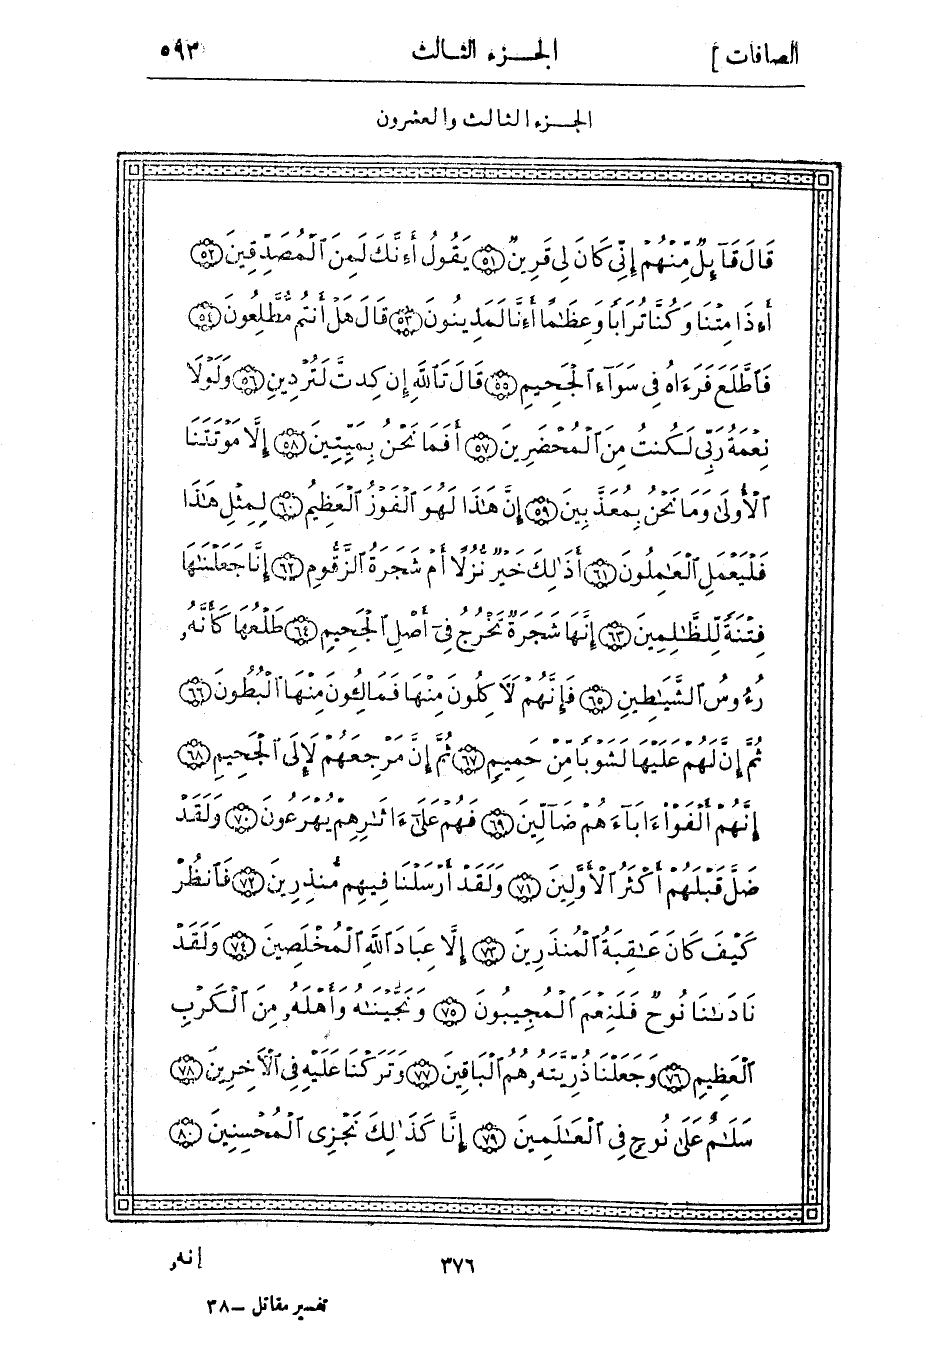 الصافات ] الجـــزء الثالث ٥٩٣
الجـــزء الثالث والعشرون
قَالَ قَآئِلٌ مِّنْهُمْ إِنِّي كَانَ لِي قَرِينٌ ٥١ يَقُولُ أَءِنَّكَ لَمِنَ ٱلْمُصَدِّقِينَ ٥٢
أَءِذَا مِتْنَا وَكُنَّا تُرَابًا وَعِظَـٰمًا أَءِنَّا لَمَدِينُونَ ٥٣ قَالَ هَلْ أَنتُم مُّطَّلِعُونَ ٥٤
فَٱطَّلَعَ فَرَءَاهُ فِي سَوَآءِ ٱلْجَحِيمِ ٥٥ قَالَ تَٱللَّهِ إِن كِدتَّ لَتُرْدِينِ ٥٦ وَلَوْلَا
نِعْمَةُ رَبِّي لَكُنتُ مِنَ ٱلْمُحْضَرِينَ ٥٧ أَفَمَا نَحْنُ بِمَيِّتِينَ ٥٨ إِلَّا مَوْتَتَنَا
ٱلْأُولَىٰ وَمَا نَحْنُ بِمُعَذَّبِينَ ٥٩ إِنَّ هَـٰذَا لَهُوَ ٱلْفَوْزُ ٱلْعَظِيمُ ٦٠ لِمِثْلِ هَـٰذَا
فَلْيَعْمَلِ ٱلْعَـٰمِلُونَ ٦١ أَذَٰلِكَ خَيْرٌ نُّزُلًا أَمْ شَجَرَةُ ٱلزَّقُّومِ ٦٢ إِنَّا جَعَلْنَـٰهَا
فِتْنَةً لِّلظَّـٰلِمِينَ ٦٣ إِنَّهَا شَجَرَةٌ تَخْرُجُ فِيٓ أَصْلِ ٱلْجَحِيمِ ٦٤ طَلْعُهَا كَأَنَّهُۥ
رُءُوسُ ٱلشَّيَـٰطِينِ ٦٥ فَإِنَّهُمْ لَآكِلُونَ مِنْهَا فَمَالِـُٔونَ مِنْهَا ٱلْبُطُونَ ٦٦
ثُمَّ إِنَّ لَهُمْ عَلَيْهَا لَشَوْبًا مِّنْ حَمِيمٍ ٦٧ ثُمَّ إِنَّ مَرْجِعَهُمْ لَإِلَى ٱلْجَحِيمِ ٦٨
إِنَّهُمْ أَلْفَوْاْ ءَابَآءَهُمْ ضَآلِّينَ ٦٩ فَهُمْ عَلَىٰٓ ءَاثَـٰرِهِمْ يُهْرَعُونَ ٧٠ وَلَقَدْ
ضَلَّ قَبْلَهُمْ أَكْثَرُ ٱلْأَوَّلِينَ ٧١ وَلَقَدْ أَرْسَلْنَا فِيهِم مُّنذِرِينَ ٧٢ فَٱنظُرْ
كَيْفَ كَانَ عَـٰقِبَةُ ٱلْمُنذَرِينَ ٧٣ إِلَّا عِبَادَ ٱللَّهِ ٱلْمُخْلَصِينَ ٧٤ وَلَقَدْ
نَادَىٰنَا نُوحٌ فَلَنِعْمَ ٱلْمُجِيبُونَ ٧٥ وَنَجَّيْنَـٰهُ وَأَهْلَهُۥ مِنَ ٱلْكَرْبِ
ٱلْعَظِيمِ ٧٦ وَجَعَلْنَا ذُرِّيَّتَهُۥ هُمُ ٱلْبَاقِينَ ٧٧ وَتَرَكْنَا عَلَيْهِ فِي ٱلْآخِرِينَ ٧٨
سَلَـٰمٌ عَلَىٰ نُوحٍ فِي ٱلْعَـٰلَمِينَ ٧٩ إِنَّا كَذَٰلِكَ نَجْزِي ٱلْمُحْسِنِينَ ٨٠
٣٧٦ إنهۥ
تفسير مقاتل – ٣٨